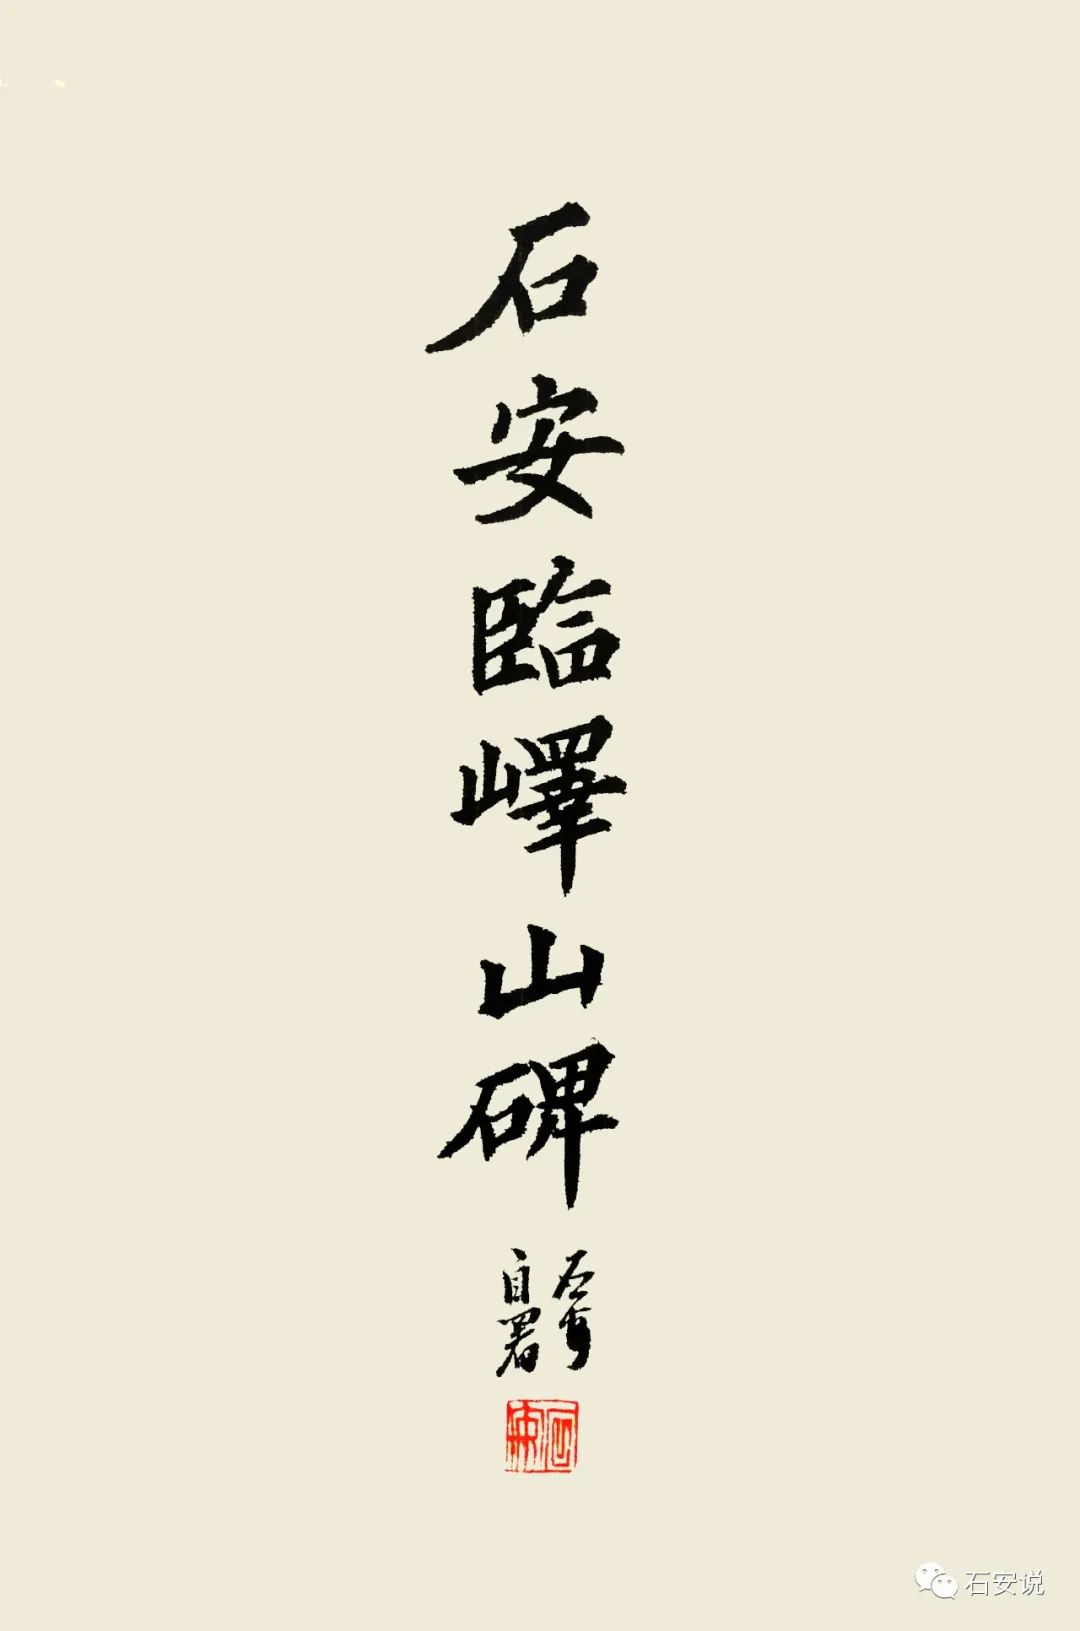 石安臨嶧山碑
石安
自署
石安
石安说